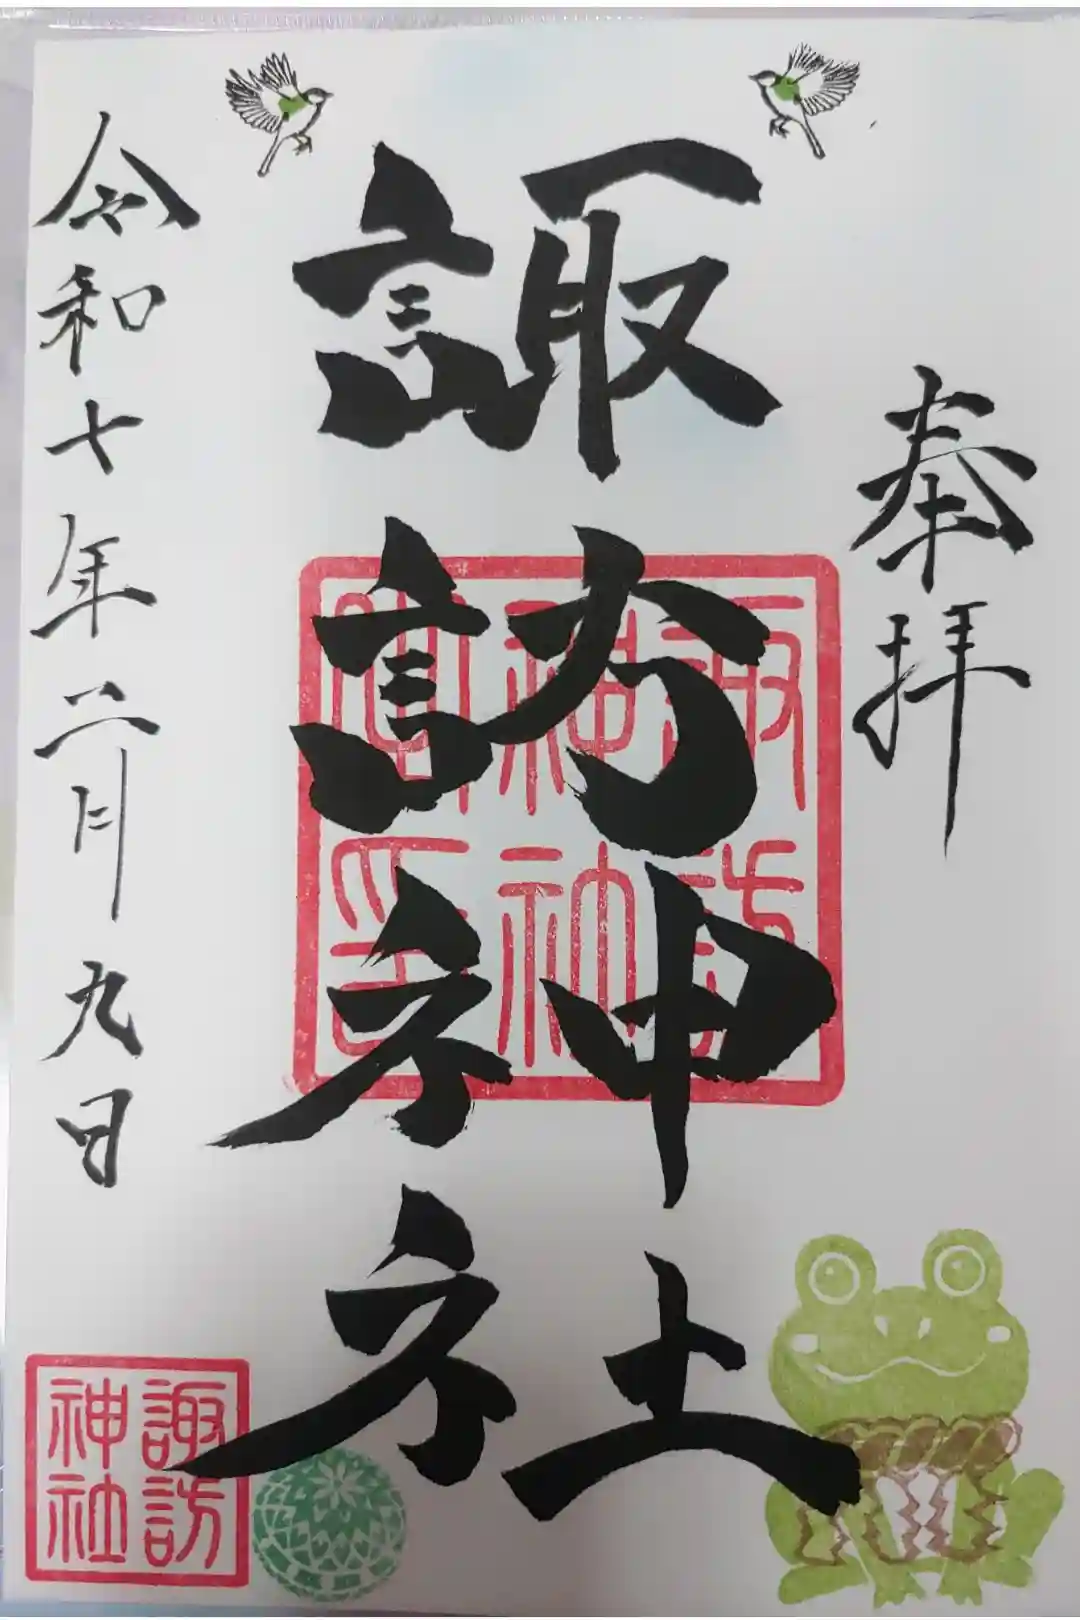 奉拝
諏訪神社
令和七年二月九日
諏訪
神社
神社
宮印
諏訪
神社